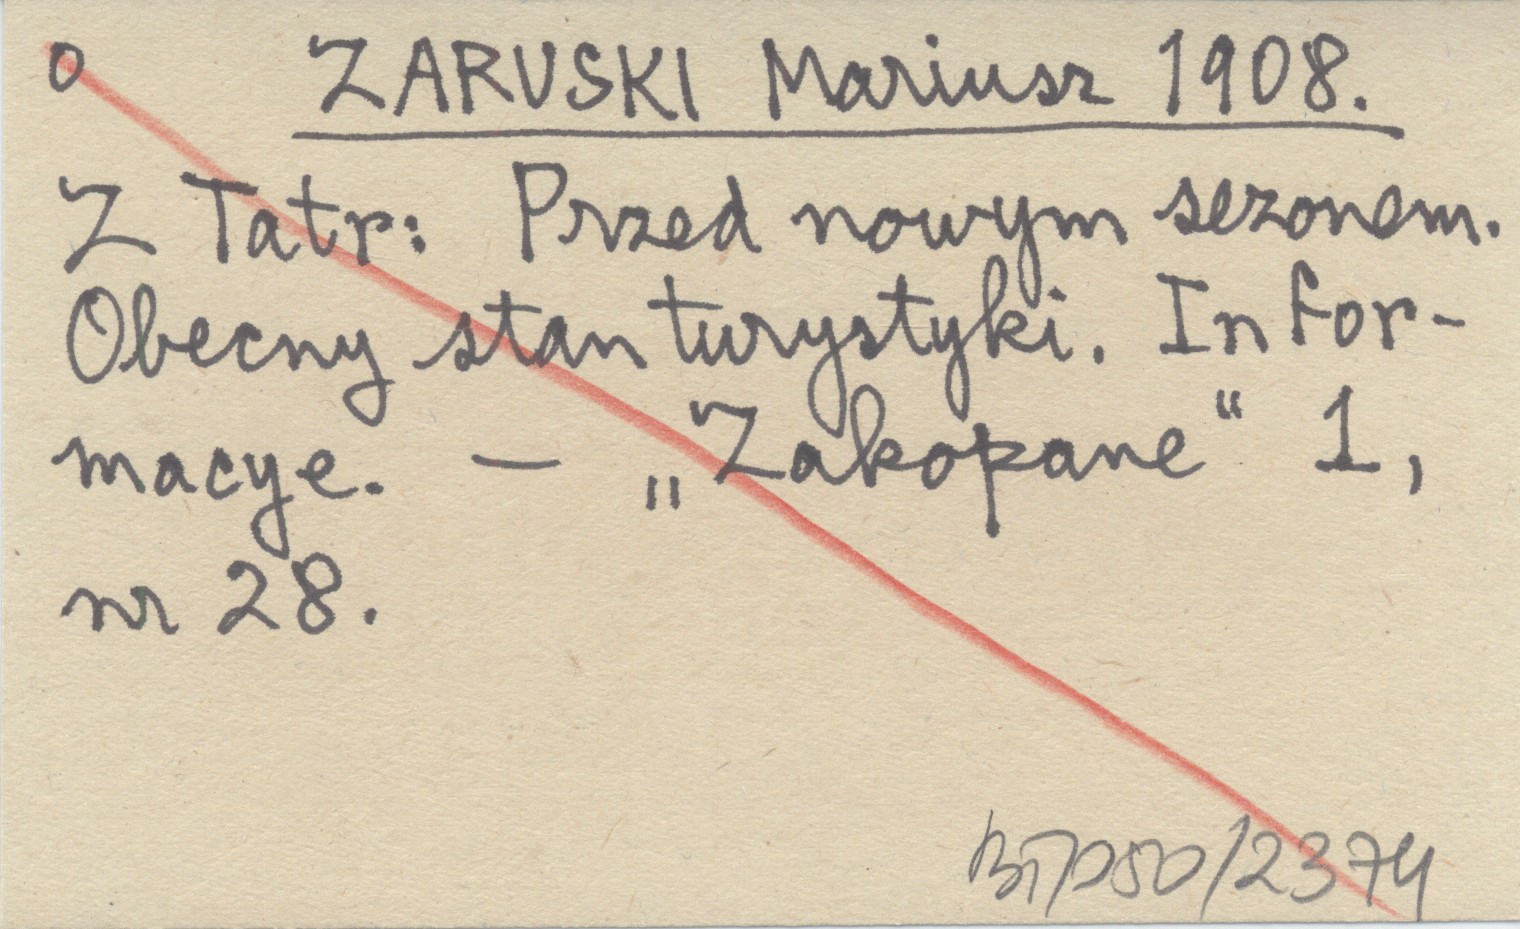 o ZARUSKI Mariusz 1908.
Z Tatr: Przed nowym sezonem.
Obecny stan turystyki. Infor-
macye. — „Zakopane“ 1,
nr 28.
/2374